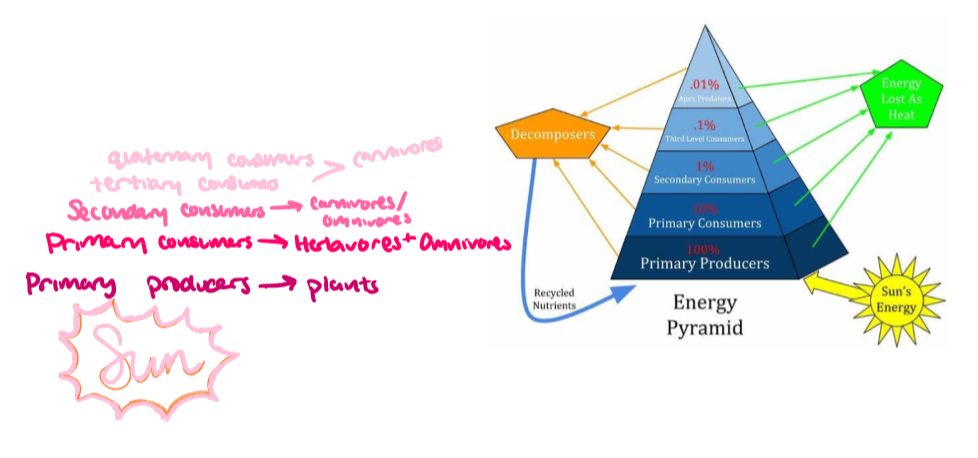 quaternary consumers
tertiary consumers
carnivores
Secondary consumers → carnivores/
omnivores
Primary consumers → Herbavores + Omnivores
Primary producers → plants
Sun
.01%
Apex Predators
.1%
Third Level Consumers
1%
Secondary Consumers
10%
Primary Consumers
100%
Primary Producers
Decomposers
Energy
Lost As
Heat
Recycled
Nutrients
Sun's
Energy
Energy
Pyramid